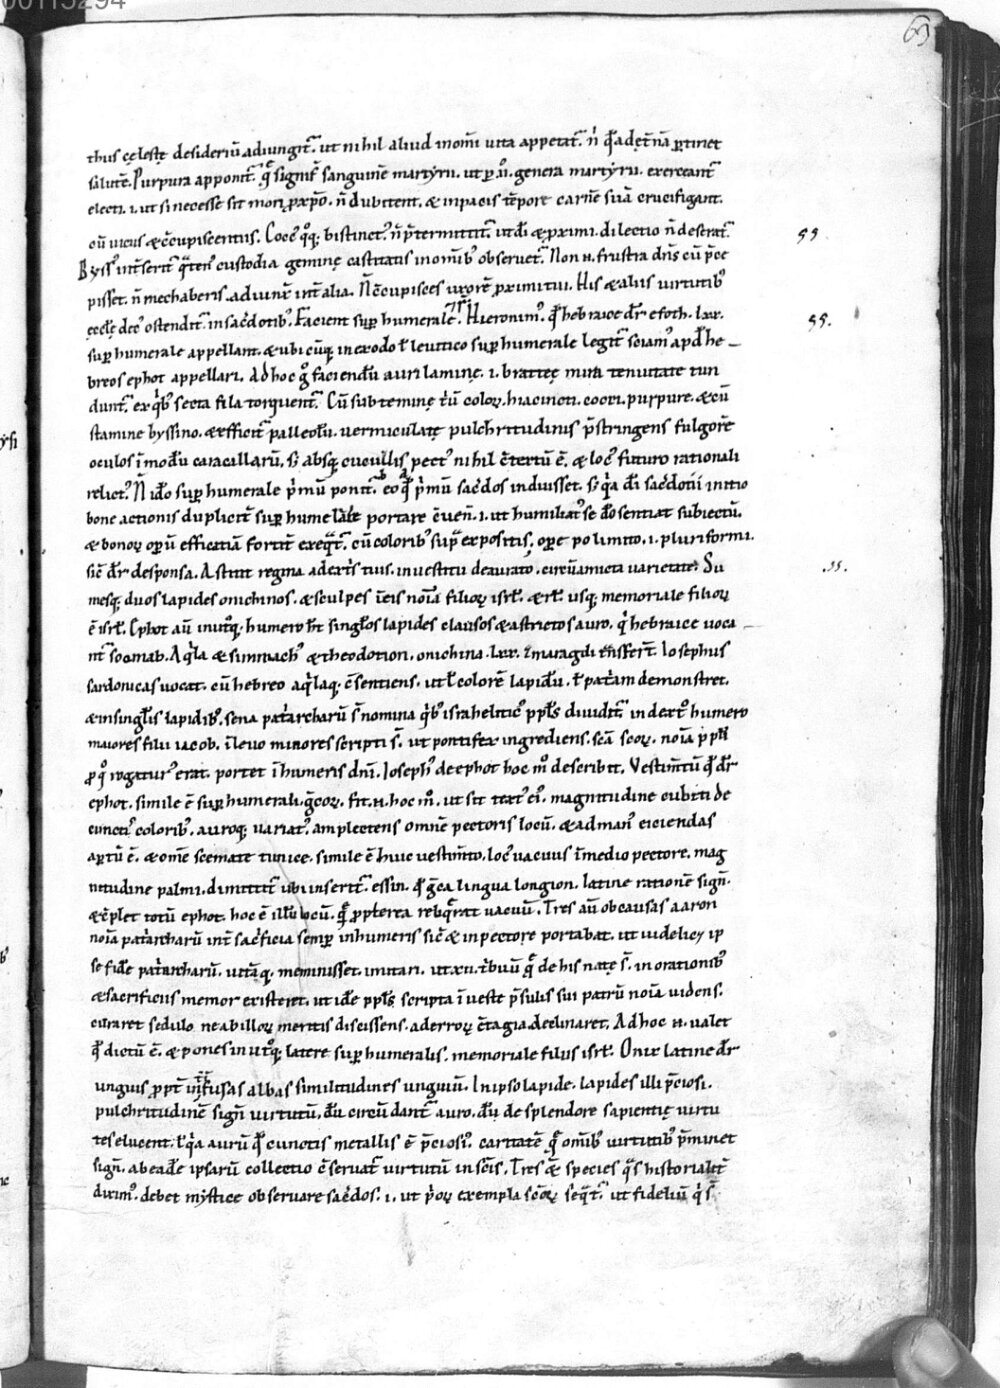 00113294
63
thus cęlestę desideriū adiungit᷑. ut nihil aliud inomī uita appetat᷑. n̄ qd̄ ad ęt̄nā ꝑtinet
salutē. Purpura apponit᷑. q̄ signif̄ sanguinē martyrū. ut
genera martyrū. exerceant᷑
electi. i. ut si necesse sit mori ꝓ xp̄o. n̄ dubitent. & inpacis tēpore carnē suā crucifigant.
cū uiciis & c̄cupiscentiis. Cocc᷒ q͛oq; bistinct᷒. n̄ p̄termittit᷑. ut dī & ꝓximi. dilectio n̄ deserat᷑.
Byss᷒ int̄serit᷑ q̄ten᷒ custodia geminę castitatis inomīb᷒ obseruet᷑. Non n. frustra dn̄s cū p̄ce
pisset. n̄ mechaberis. adiunx̄ int̄ alia. N̄ c̄cupisces uxorē ꝓximi tui. His & aliis uirtutib᷒
ostendit᷑ in sac̄dotib᷒. Facient suꝑ humerale. Hieronim᷒. qd̄ hebraice dr̄ efoth. lxx.
suꝑ humerale appellant. & ubicūq; inexodo ł leuitico suꝑ humerale legit᷑ sciam᷒ apd̄ he
breos ephot appellari. Ad hoc g͛ faciendū auri laminę. i. bratteę mira tenuitate tun
dunt᷑. ex q͛b᷒ secta fila torquent᷑. Cū subtemine t͛iū coloꝝ. hiacincti. cocci. purpurę. & cū
stamine byssino. & efficit᷑ palleolū. uermiculatę pulchritudinis p̄stringens fulgorē
oculos ī modū caracillarū. s; absq; cucullis. pect᷒ nihil c̄tectū ē. & loc᷒ futuro rationali
relict᷒. N̄ ido suꝑ humerale p͛mū ponit᷑. eo qd̄ p͛mū sac̄dos induisset. s; q͛a dī sac̄dotii initio
bonę actionis duplicit̄ suꝑ humerale portare c̄ueń. i. ut humiliat᷒ se dō sentiat subiectū.
& bonoꝝ oꝑū efficatiā fortit̄ exeq̄t᷑. cū colorib᷒ sup̄ expositis, oꝑe polimito. i. pluriformi.
sic̄ dr̄ de sponsa. Astitit regina adext͛s tuis. inuestitu deaurato. circūamicta uarietate. Su
mesq; duos lapides onichinos. & sculpes īeis noīa filioꝝ isrł. & rł. usq; memoriale filioꝝ
isrł. Ephot aū inutq; humero hn̄t singlōs lapides clausos & astrictos auro. q͛ hebraice uoca
nt᷑ soomab. Aq͛la & simmach᷒ & theodotion. onichina. lxx. smaragdi tn̄sfert̄. Iosephus
sardonicas uocat. cū hebreo aq͛laq; c̄sentiens. ut ł colorē lapidū. ł pat͛am demonstret.
& insinglīs lapidib᷒. sena pat͛archarū s̄ nomina q͛b᷒ israheliti᷒ ppłs diuidit᷑ in dext͛o humero
maiores filii iacob. ī leuo minores scripti s̄. ut pontifex ingrediens. scā scoꝝ. noīa ppłi
ꝓ q͛ rogatur᷒ erat. portet ī humeris dnī. Ioseph᷒ de ephot hoc m͛ describit. Vestim̄tū qd̄ dr̄
ephot. simile ē suꝑ humerali. grēcoꝝ. fit. n. hoc m͛. ut sit text᷒ ei᷒. magnitudine cubiti de
cuncti᷒ colorib᷒. auroq; uariat᷒. amplectens omnē pectoris locū. & ad man᷒ eiciendas
aꝑtū ē. & omē scemate tunice. simile ē huic uestim̄to. loc᷒ uacuus ī medio pectore. mag
nitudine palmi. dimittit᷑ ubi insertit᷑. essin. qd̄ gr̄ca lingua longion. latine rationē sign̄.
& c̄plet totū ephot. hoc ē illū locū. q̄ ꝓpterea relīqrat uacuū. Tres aū ob causas aaron
noīa pat͛archarū int̄ sac͛ficia semꝑ inhumeris sic̄ & inpectore portabat. ut uidelicꝫ ip
se fidē pat͛archarū. uitāq; meminisset. imitari. ut xii. t͛buū q̄ de his natę s̄. in orationib᷒
& sacrificiis memor existeret. ut idē ppłs scripta ī ueste p̄sulis sui patrū noīa uidens.
curaret sedulo. ne abilloꝝ meritis discissens. ad erroꝝ c̄tagia declinaret. Ad hoc n. ualet
qd̄ dictū ē. & pones inutq; latere suꝑ humeralis. memoriale filiis isrł. Onix latine dr̄
unguis ꝓpt̄ infusas albas similitudines unguiū. In ipso lapide. lapides illi p̄ciosi.
pulchritudinē sign̄ uirtutū. dū circū dant᷑ auro. dū de splendore sapientię uirtu
tes elucent. ł q͛a aurū qd̄ cunctis metallis ē p̄ciosi᷒. caritatē q̄ omīb᷒ uirtutib᷒ p̄minet
sign̄. abeadē ipsarū collectio c̄seruat᷑ uirtutū inscīs. Tres & species q͛s historialit̄
dixim᷒. debet mystice obseruare sac̄dos. i. ut p͛oꝝ exempla scōꝝ seq̄t᷑. ut fideliū q͛ s̄